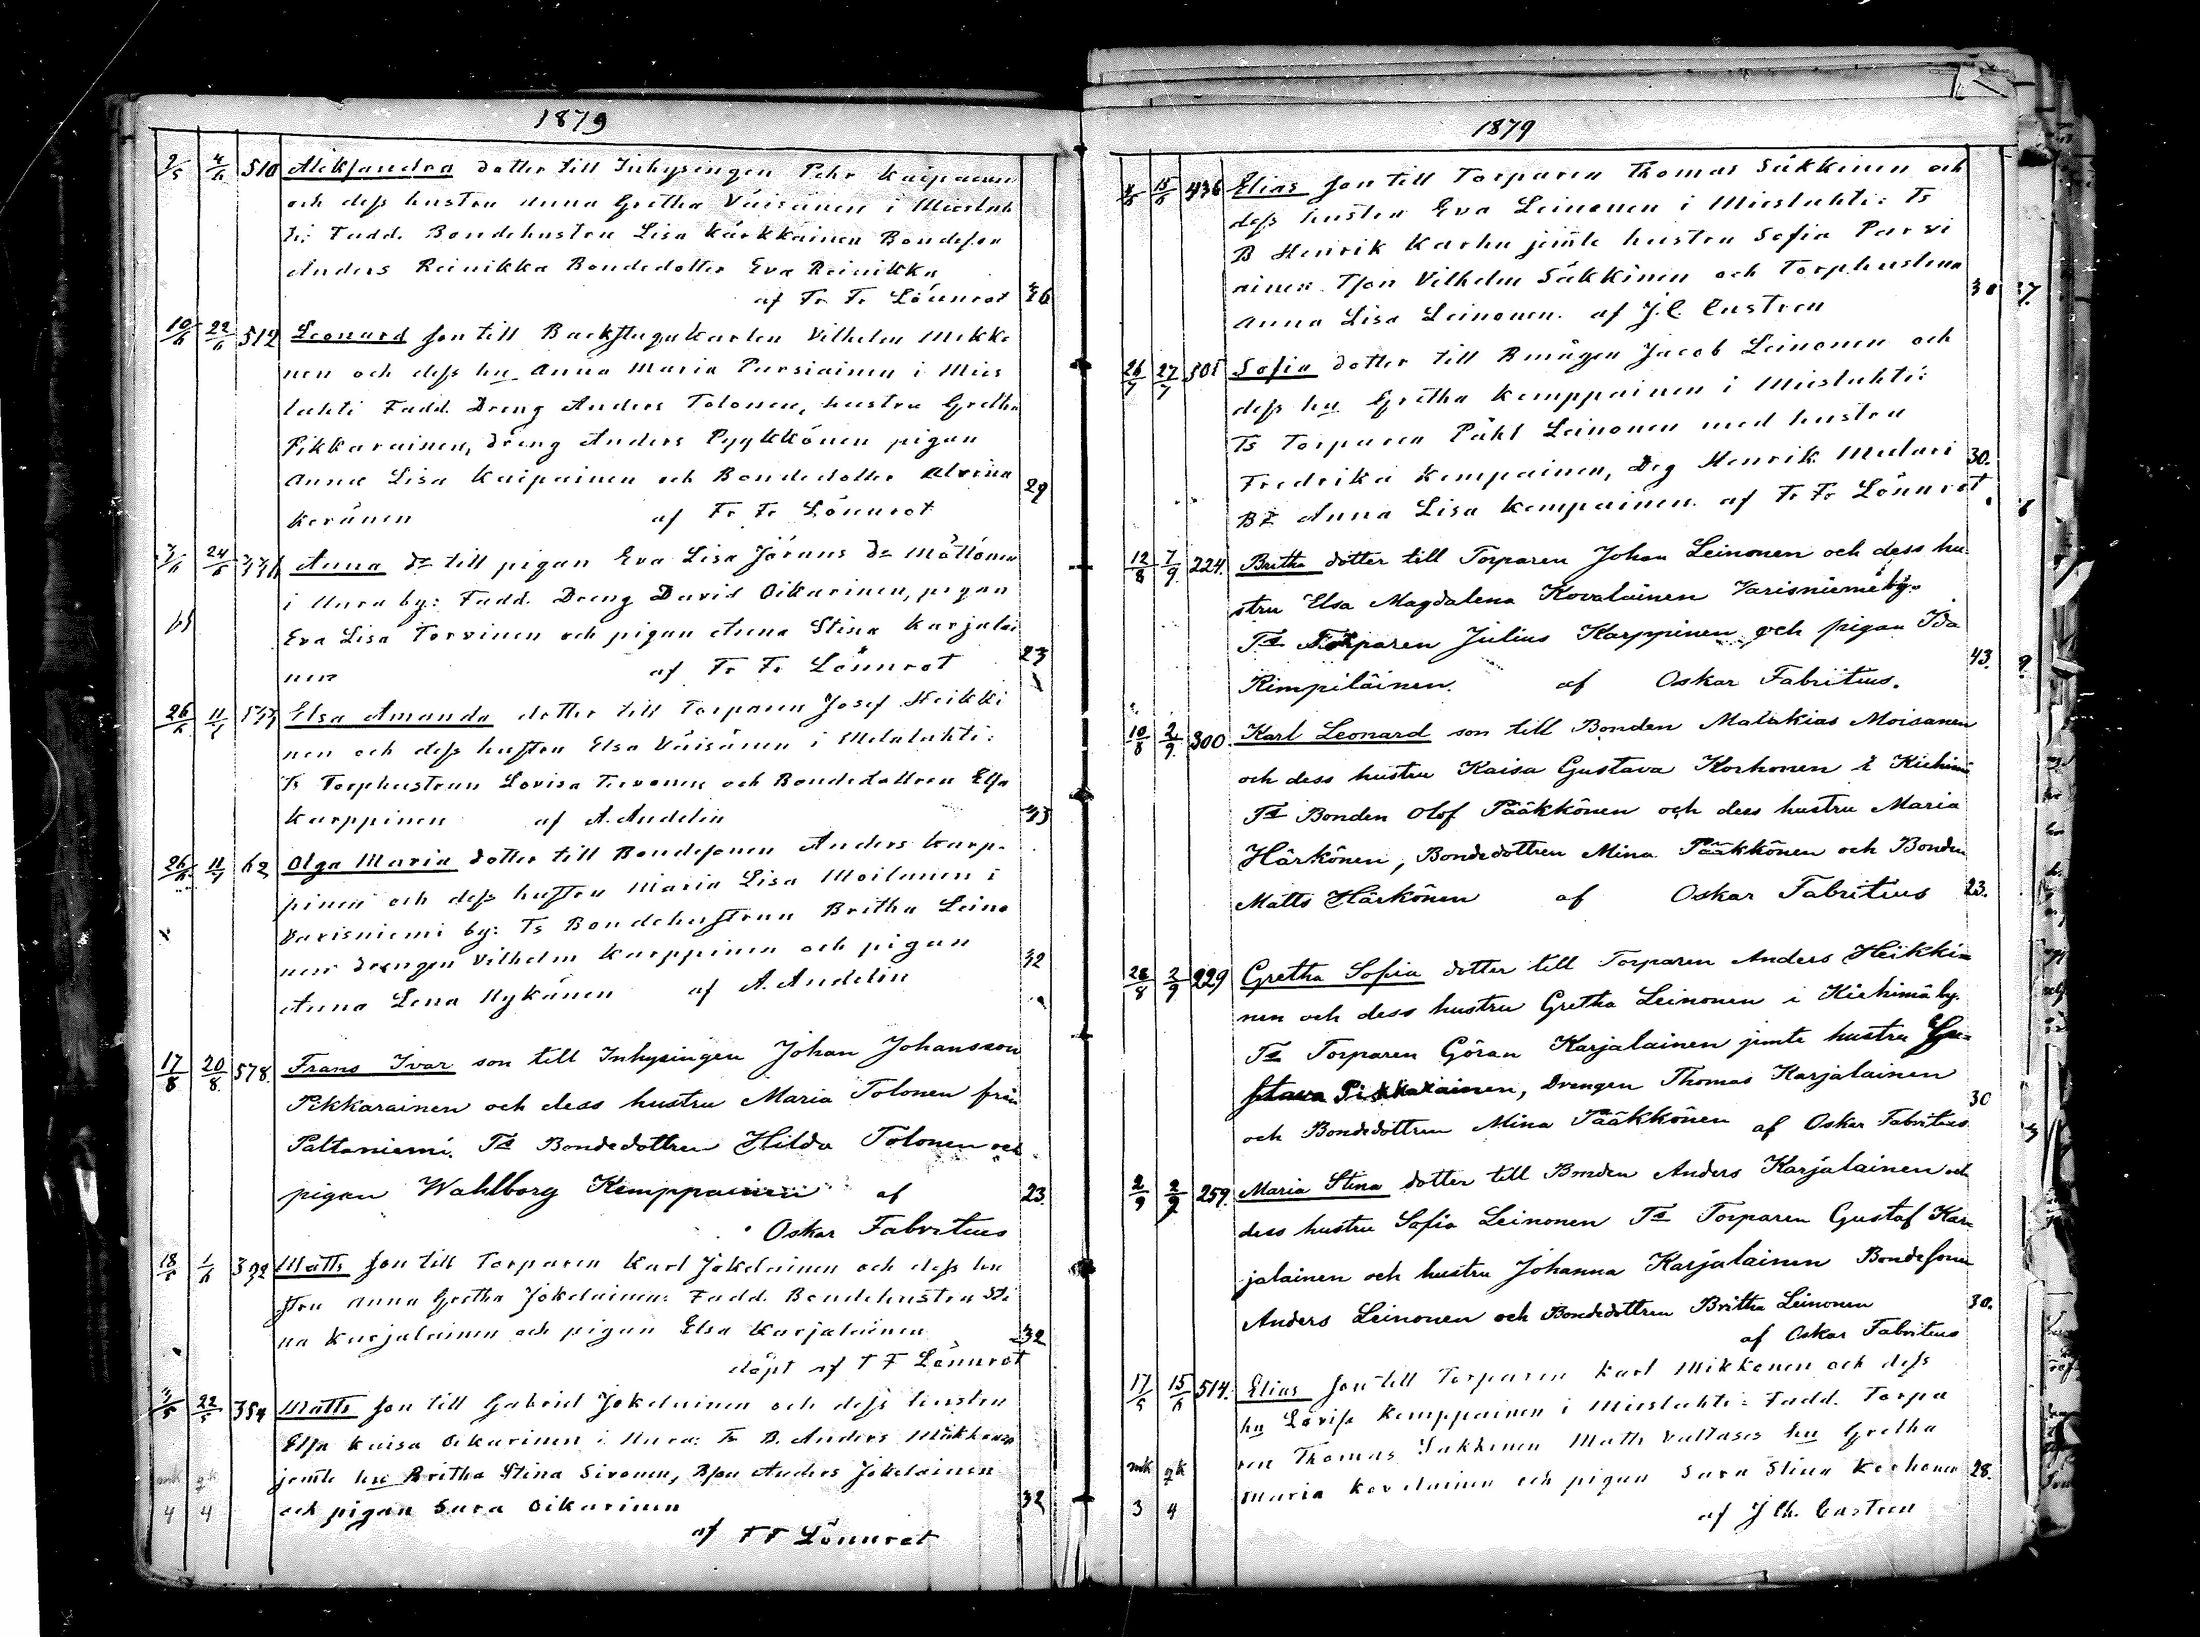 1879
2/5 4/6 510 Aleksandra dotter till Inhysingen Pehr Kaipainen
och dess hustru Anna Gretha Väisänen i Mieslah
ti: Fadd. Bondehustru Lisa Kärkkäinen Bondeson
Anders Reinikka Bondedotter Eva Reinikka
af Fr Fr Lönnrot 26
10/6 22/6 512 Leonard son till Backstugukarlen Vilhelm Mikko
nen och dess hu Anna Maria Pursiainen i Mies
lahti Fadd. Dreng Anders Tolonen, hustru Gretha
Pikkarainen, dreng Anders Pyykkönen pigan
Anna Lisa Kaipainen och Bondedotter Alvina 29
Keränen af Fr Fr Lönnrot
24/6 Anna dr till pigan Eva Lisa Jörans dr Mättönen
i Uura by: Fadd. Dreng David Oikarinen, pigan
Eva Lisa Torvinen och pigan Anna Stina Karjalai
nen af Fr Fr Lönnrot 23
26/6 11/7 Elsa Amanda dotter till Torparen Josef Heikki
nen och dess hustru Elsa Väisänen i Melalahti:
Ts Torphustrun Lovisa Tervonen och Bondedottren Elsa
Karppinen af A. Andelin 43
26/6 11/7 62 Olga Maria dotter till Bondesonen Anders Karp-
pinen och dess hustru Maria Lisa Moilanen i
Varisniemi by: Ts Bondehustrun Britha Leino
nen drengen Vilhelm Karppinen och pigan 32
Anna Lena Nykänen af A. Andelin
17/8 20/8 578. Frans Ivar son till Inhysingen Johan Johansson
Pikkarainen och dess hustru Maria Tolonen från
Paltaniemi. Ts Bondedottren Hilda Tolonen och
pigan Wahlborg Kemppainen af 23.
Oskar Fabritius
18/5 1/6 392 Matts son till Torparen Karl Jokelainen och dess hu
stru Anna Gretha Jokelainen: Fadd. Bondehustru Sti
na Karjalainen och pigan Elsa Karjalainen 32
döpt af F F Lönnrot
3/5 22/5 354 Matts son till Gabriel Jokelainen och dess hustru
Elsa Kaisa Oikarinen i Uura: Ts B. Anders Mikkonen
jemte hu Britha Stina Sironen, Bson Anders Jokelainen
och pigan Sara Oikarinen 32
4 4
af F F Lönnrot
1879
15/6 436 Elias son till Torparen Thomas Säkkinen och
dess hustru Eva Leinonen i Mieslahti: Ts
B Henrik Karhu jemte hustru Sofia Parvi
ainen Tson Vilhelm Säkkinen och Torphustrun 30
Anna Lisa Leinonen. af J. C. Castren
26/7 27/7 505 Sofia dotter till Bmågen Jacob Leinonen och
dess hu Gretha Kemppainen i Mieslahti:
Ts Torparen Påhl Leinonen med hustru
Fredrika Kempainen, Dg Henrik Mulari 30.
Anna Lisa Kempainen. af Fr Fr Lönnrot
12/8 7/9 224. Britha dotter till Torparen Johan Leinonen och dess hu-
stru Elsa Magdalena Kovalainen Varisniemi by.
Ts Torparen Julius Karppinen och pigan Ida
Kimpiläinen. af Oskar Fabritius. 43.
10/8 2/9 300. Karl Leonard son till Bonden Malakias Moisanen
och dess hustru Kaisa Gustava Korhonen i Kiehimä
Ts Bonden Olof Pääkkönen och dess hustru Maria
Härkönen, Bondedottren Mina Pääkkönen och Bonden
Matts Härkönen af Oskar Fabritius 23.
28/8 2/9 229 Gretha Sofia dotter till Torparen Anders Heikki-
nen och dess hustru Gretha Leinonen i Kiehimä by.
Ts Torparen Göran Karjalainen jemte hustru Gu-
stava Pikkarainen, Drengen Thomas Karjalainen 30
och Bondedottren Mina Pääkkönen af Oskar Fabritius
2/9 2/9 259. Maria Stina dotter till Bonden Anders Karjalainen och
dess hustru Sofia Leinonen Ts Torparen Gustaf Kar-
jalainen och hustru Johanna Karjalainen Bondesonen
Anders Leinonen och Bondedottren Britha Leinonen 30.
af Oskar Fabritius
17/5 15/6 514. Elias son till Torparen Karl Mikkonen och dess
hu Lovisa Kemppainen i Mieslahti: Fadd. Torpa
ren Thomas Säkkinen Matts Valtases hu Gretha
Maria Kovalainen och pigan Sara Stina Korhonen 28.
3 4
af J Ch. Castren